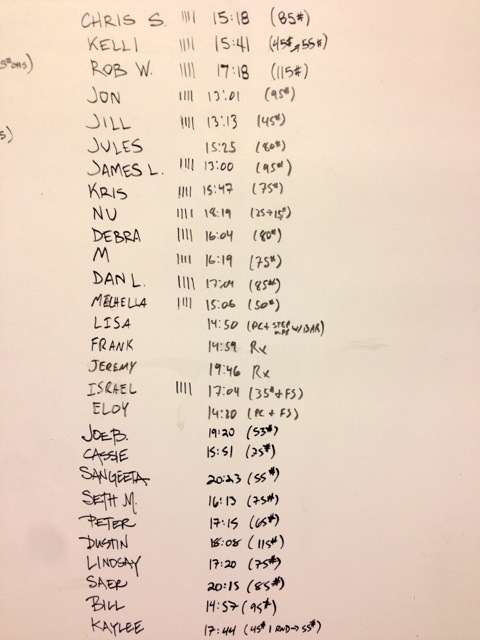 CHRIS S. |||| 15:18 (85#)
KELLI |||| 15:41 (45#→55#)
ROB W. |||| 17:18 (115#)
JON |||| 13:01 (95#)
JILL |||| 13:13 (45#)
JULES 15:25 (80#)
JAMES L. |||| 13:00 (95#)
KRIS |||| 15:47 (75#)
NU |||| 18:19 (25→15#)
DEBRA |||| 16:04 (80#)
M |||| 16:19 (75#)
DAN L. |||| 17:04 (85#)
MECHELLA |||| 15:06 (50#)
LISA 14:50 (PC + STEP UPS W/BAR)
FRANK 14:59 Rx
JEREMY 19:46 Rx
ISRAEL |||| 17:04 (35# + FS)
ELOY 14:20 (PC + FS)
JOE B. 19:20 (53#)
CASSIE 15:51 (25#)
SANGEETA 20:23 (55#)
SETH M. 16:13 (75#)
PETER 17:15 (65#)
DUSTIN 18:08 (115#)
LINDSAY 17:20 (75#)
SAER 20:15 (85#)
BILL 14:57 (95#)
KAYLEE 17:44 (45# 1 RND→55#)